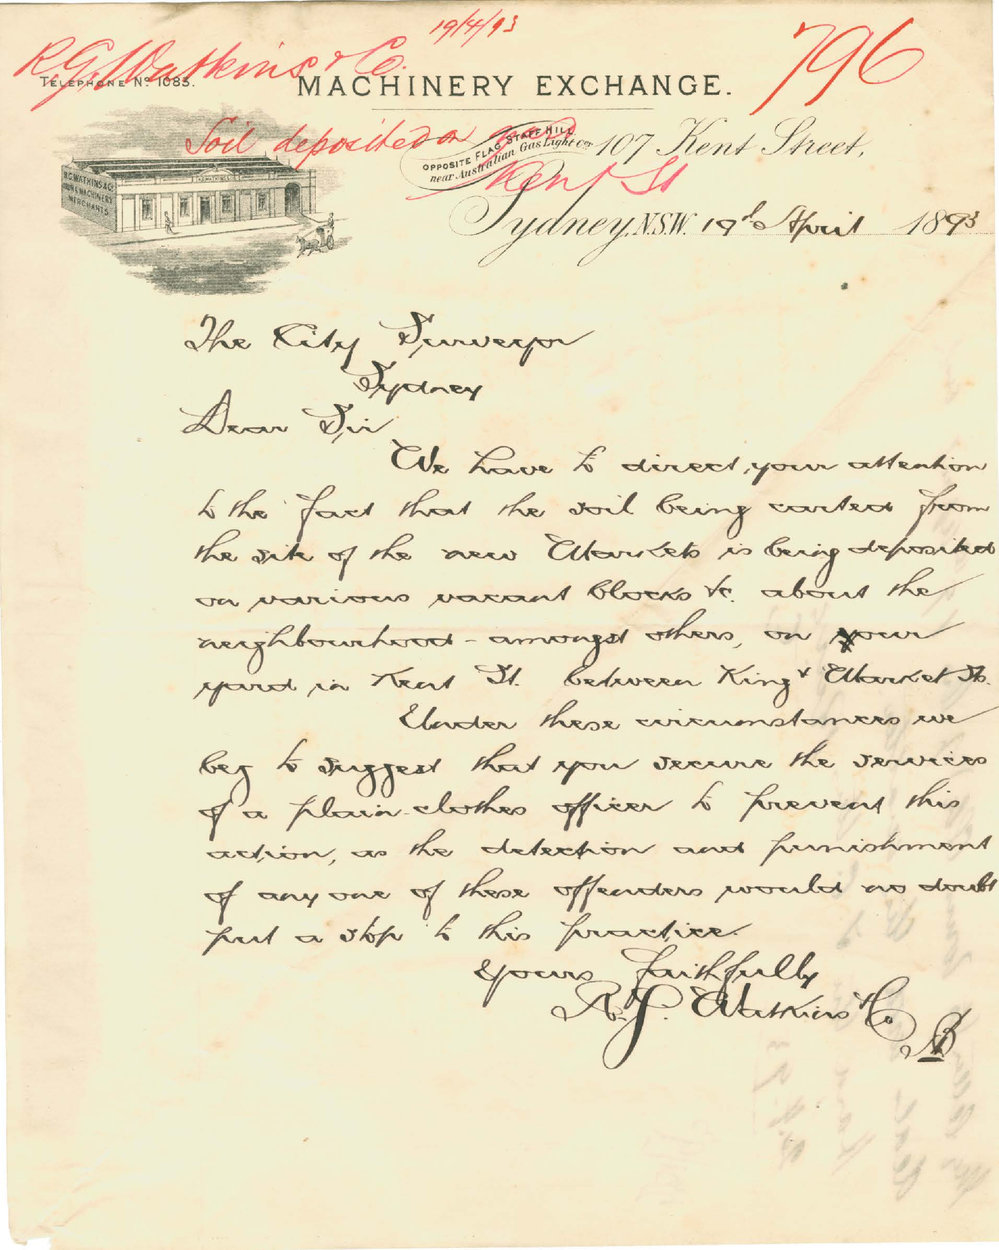 19/4/93
R.G. Watkins & Co.
796
TELEPHONE No. 1083.
MACHINERY EXCHANGE.
Soil deposited on
Kent St
OPPOSITE FLAG STAFF HILL
near Australian Gas Light Co.
107 Kent Street,
R.G. WATKINS & Co
IRON & MACHINERY
MERCHANTS
Sydney, N.S.W. 19th April 1893
The City Surveyor
Sydney
Dear Sir
We have to direct, your attention
to the fact that the soil being carted from
the site of the new Markets is being deposited
on various vacant blocks &c. about the
neighbourhood - amongst others, on your
yard in Kent St. between King & Market Sts.
Under these circumstances we
beg to suggest that you secure the services
of a plain-clothes officer to prevent this
action, as the detection and punishment
of any one of these offenders would no doubt
put a stop to this practice.
Yours faithfully
R.G. Watkins & Co